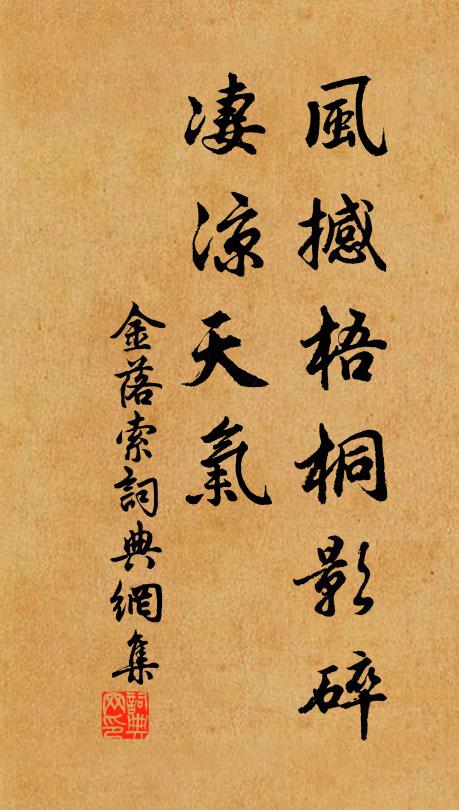 風撼梧桐影碎
凄凉天氣
金落索詞典網集
詞典
网印